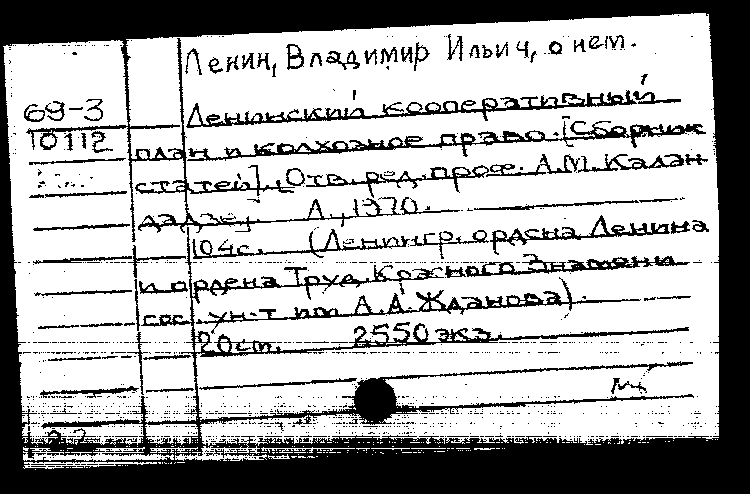 Ленин, Владимир Ильич, о нем.
69-3
10112
Ленинский кооперативный
план и колхозное право. [Сборник
статей]. [Отв. ред. проф. А.М. Калан-
дадзе]. Л., 1970.
104с. (Ленингр. ордена Ленина
и ордена Труд. Красного Знамени
гос. ун-т им А.А. Жданова).
20см. 2550 экз.
22